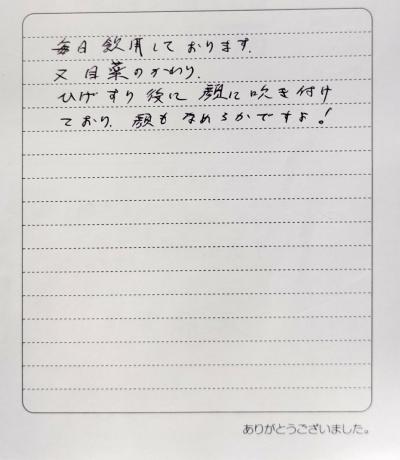 毎日飲用しております.
又目薬のかわり.
ひげすり後に顔に吹き付け
ており.顔もなめらかですよ!
ありがとうございました。